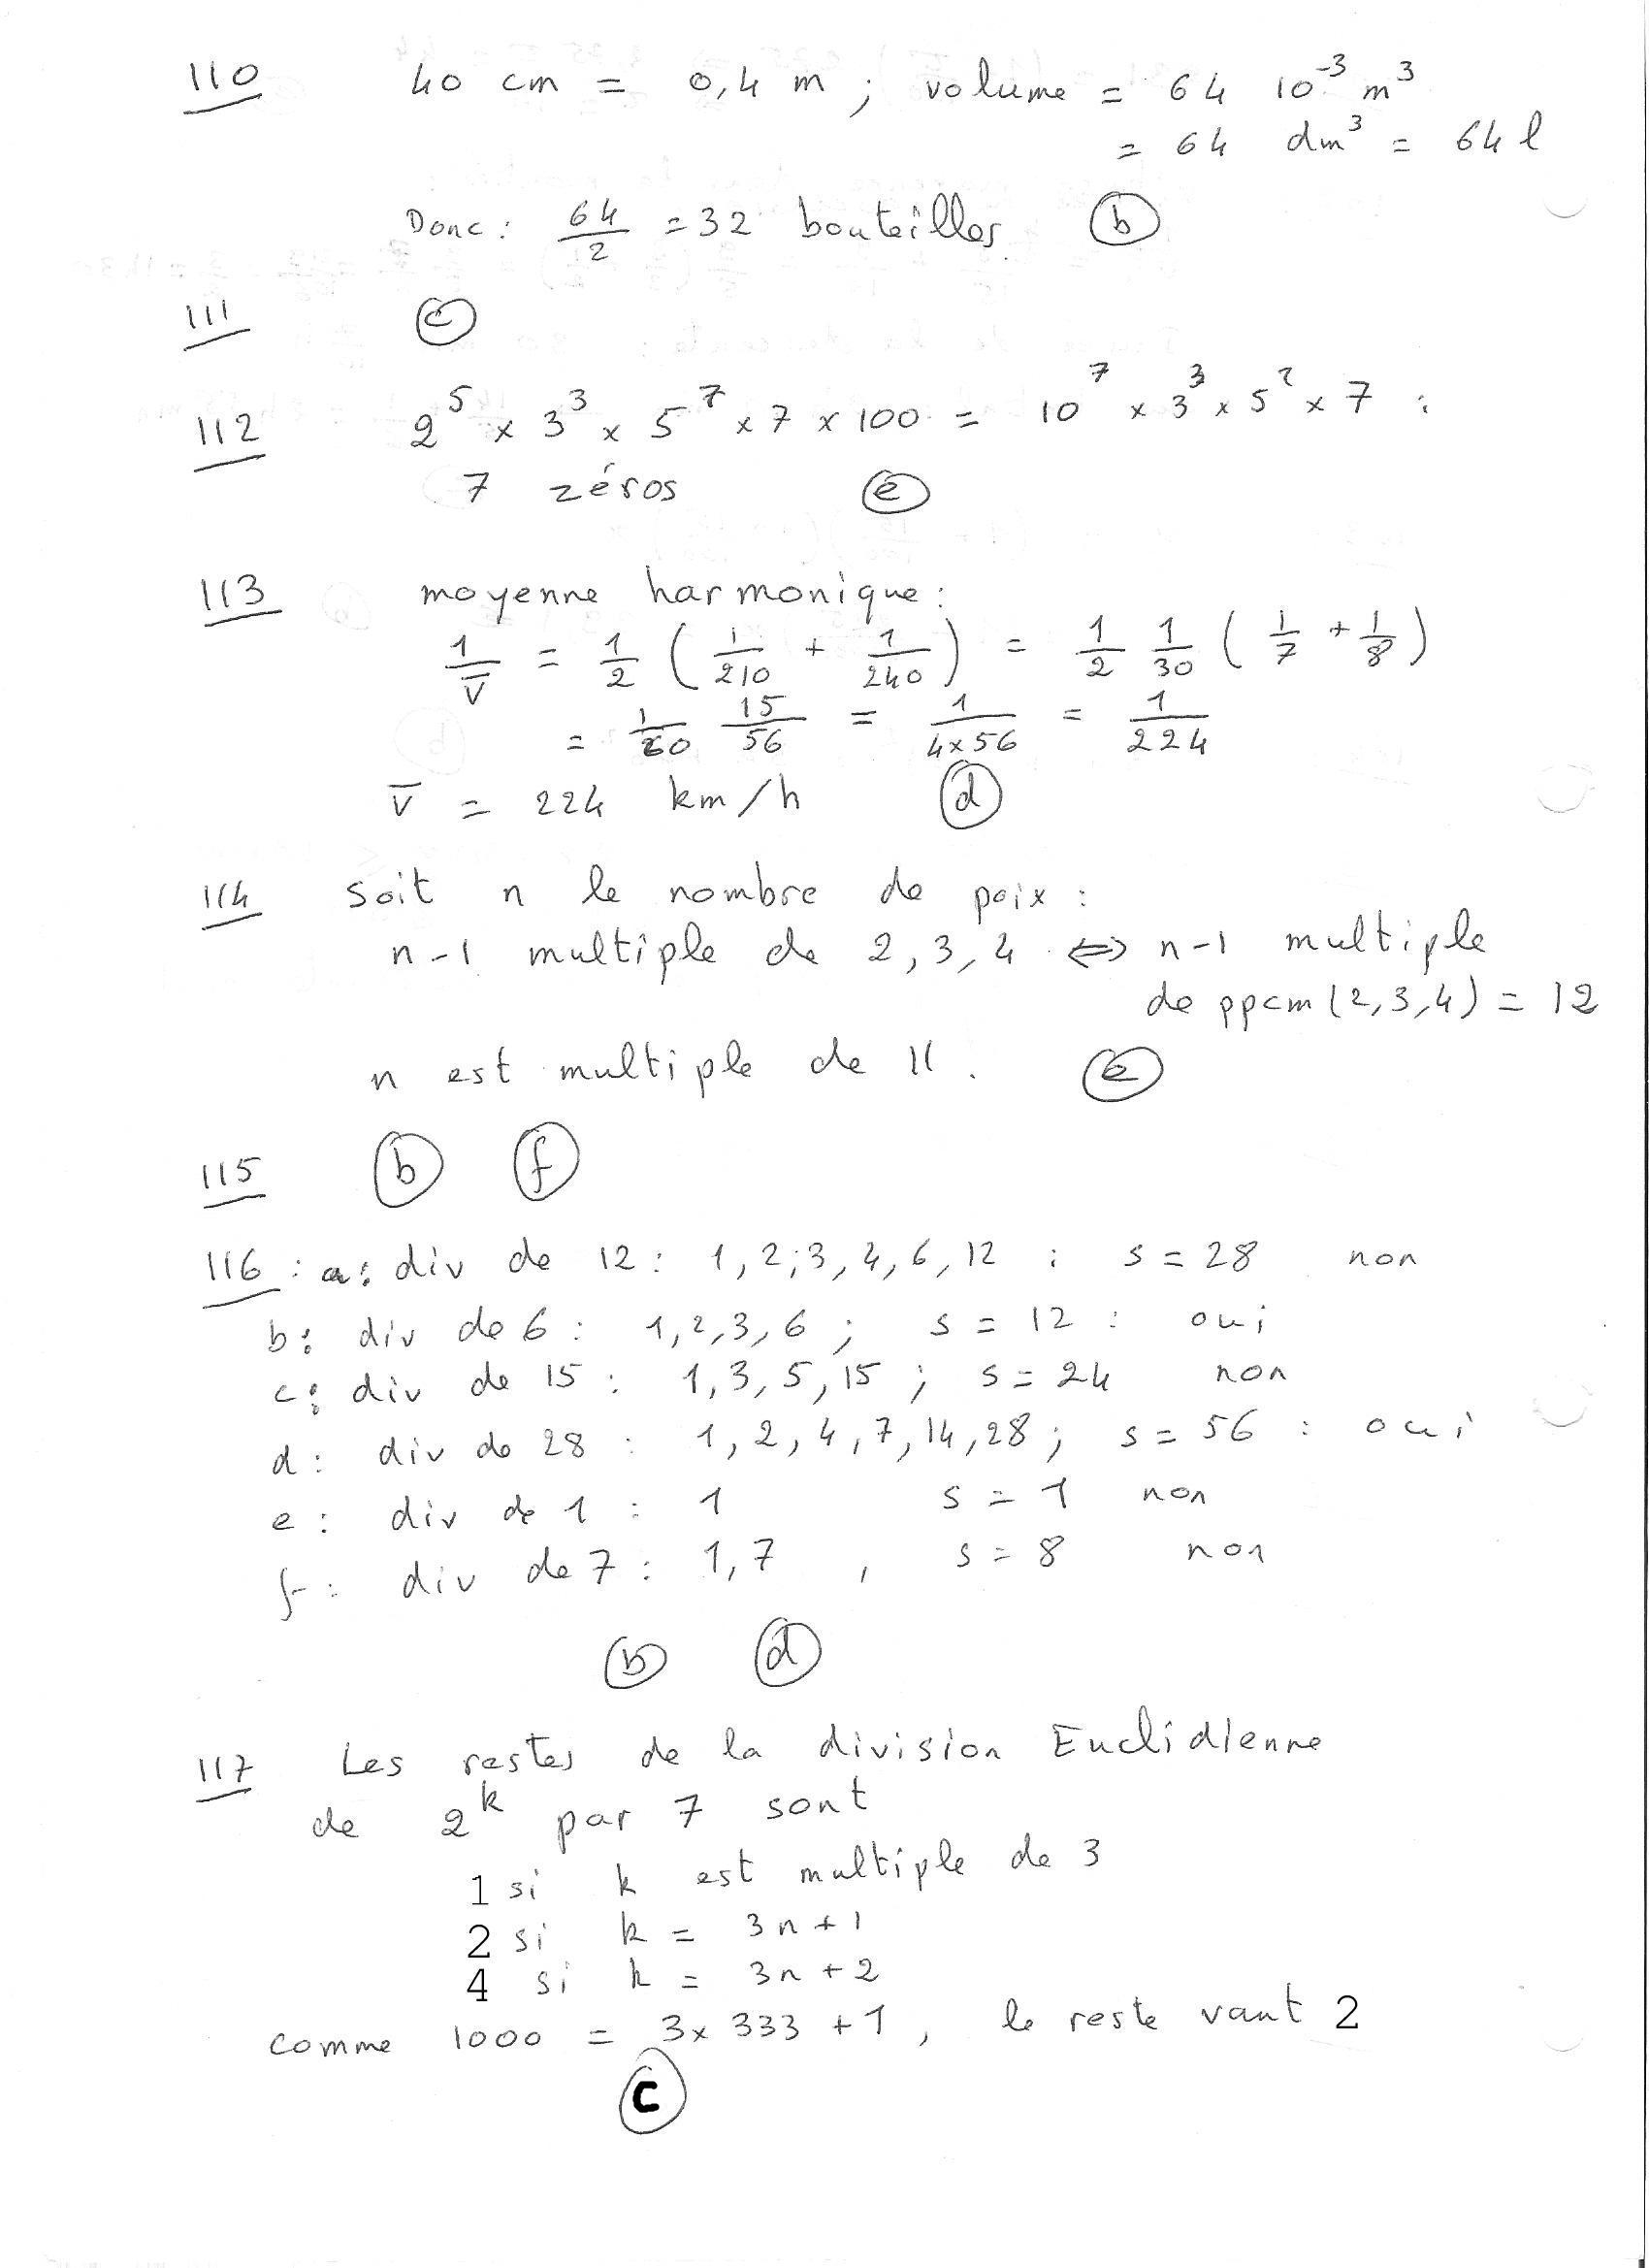 110 40 cm = 0,4 m ; volume = 64 10⁻³ m³
= 64 dm³ = 64 l
Donc : 64/2 = 32 bouteilles. (b)
111 (c)
112 2⁵ x 3³ x 5⁷ x 7 x 100 = 10⁷ x 3³ x 5² x 7 :
7 zéros (e)
113 moyenne harmonique :
1/V̅ = 1/2 ( 1/210 + 1/240 ) = 1/2 1/30 ( 1/7 + 1/8 )
= 1/60 15/56 = 1/(4x56) = 1/224
V̅ = 224 km/h (d)
114 soit n le nombre de poix :
n-1 multiple de 2, 3, 4 ⇔ n-1 multiple
de ppcm (2,3,4) = 12
n est multiple de 11. (e)
115 (b) (f)
116 : a : div de 12 : 1, 2 ; 3, 4, 6, 12 ; s = 28 non
b : div de 6 : 1, 2, 3, 6 ; s = 12 : oui
c : div de 15 : 1, 3, 5, 15 ; s = 24 non
d : div de 28 : 1, 2, 4, 7, 14, 28 ; s = 56 : oui
e : div de 1 : 1 s = 1 non
f : div de 7 : 1, 7 , s = 8 non
(b) (d)
117 Les restes de la division Euclidienne
de 2ᵏ par 7 sont
1 si k est multiple de 3
2 si k = 3n + 1
4 si k = 3n + 2
comme 1000 = 3x 333 + 1, le reste vaut 2
(c)